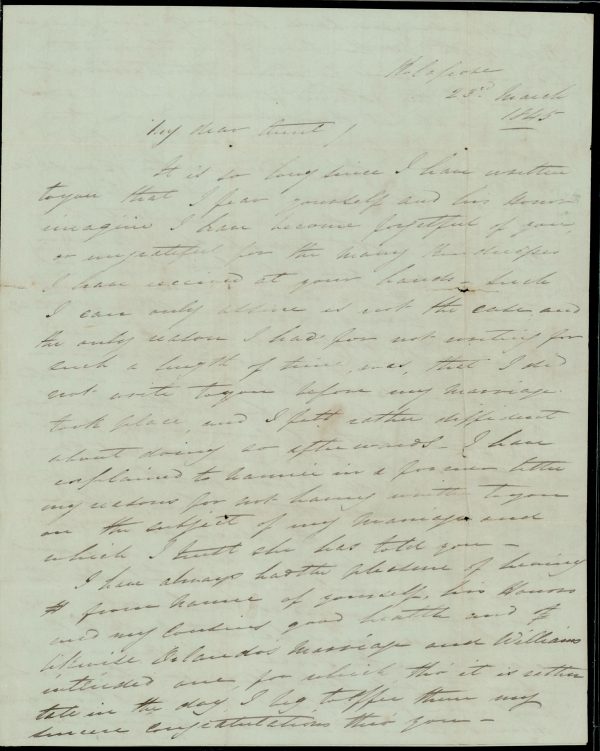 23rd March
1845
My dear Aunt,
It is so long since I have written
to you that I fear yourself and his Honor
imagine I have become forgetful of you,
or ungrateful for the many kindnesses
I have received at your hands - Such
I can only assure is not the case and
the only reason I had for not writing for
such a length of time, was, that I did
not write to you before my marriage
took place, and I felt rather diffident
about doing so afterwards - I have
explained to Nannie in a former letter
my reasons for not having written to you
on the subject of my marriage and
which I trust she has told you -
I have always had the pleasure of hearing
from Nannie of yourself, his Honors
and my Cousins good health and of
likewise Orlandos marriage and Williams
intended one for which tho' it is rather
late in the day, I beg to offer them my
sincere congratulations thro you -